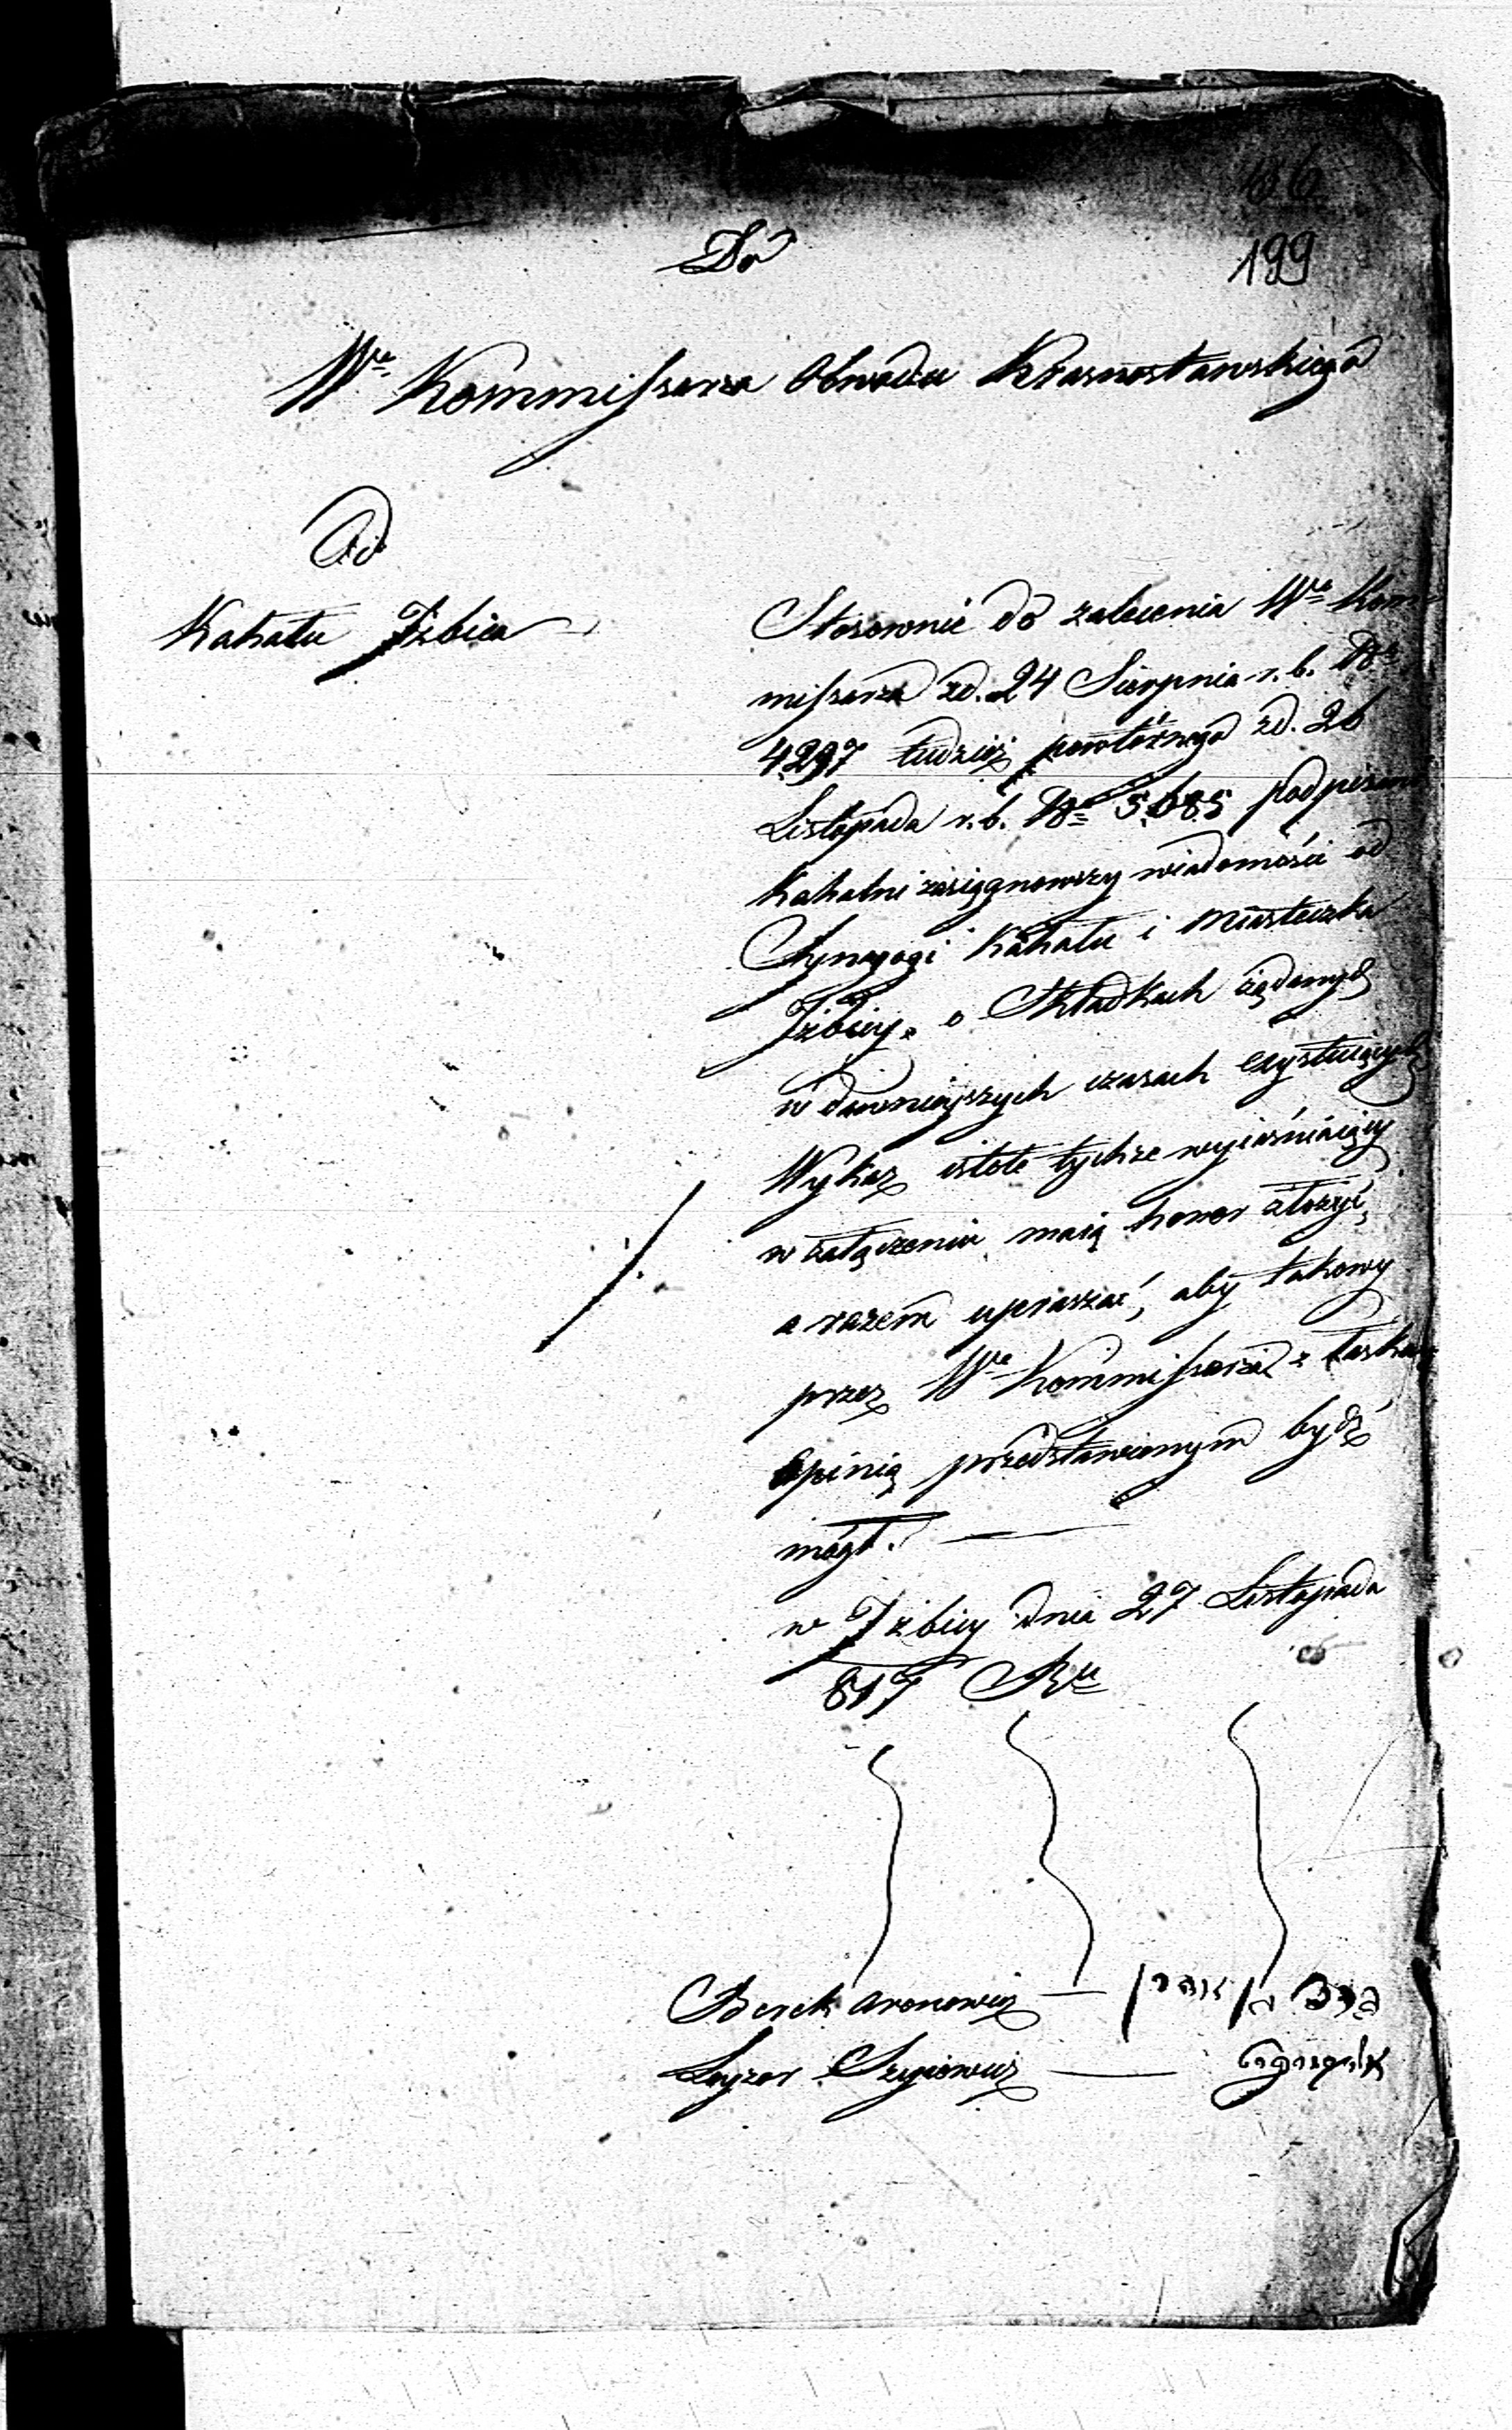 199
Do
Wo Kommissarza Obwodu Krasnostawskiego
Od
Kahału Izbica
Stosownie do zalecenia Wo Kom-
missarza zd. 24 Sierpnia r. b. No
4297 tudzież powtórnego zd. 26
Listopada r. b. No 5685 podpisani
Kahalni zasiągnowszy wiadomości od
Synagogi Kahału i Miasteczka
Izbicy o Składkach żądanych
w dawnieyszych czasach exystuiących
Wykaz istote tychże wyiaśniaiący
w załączeniu maią honor złożyć,
a razem upraszać, aby takowy
przez Wo Kommissarza z łaskawą
Opinią przedstawionym bydź
mógł.
w Izbicy dnia 27 Listopada
817 Ru
Berek Aronowicz
Leyzor Szyiowicz